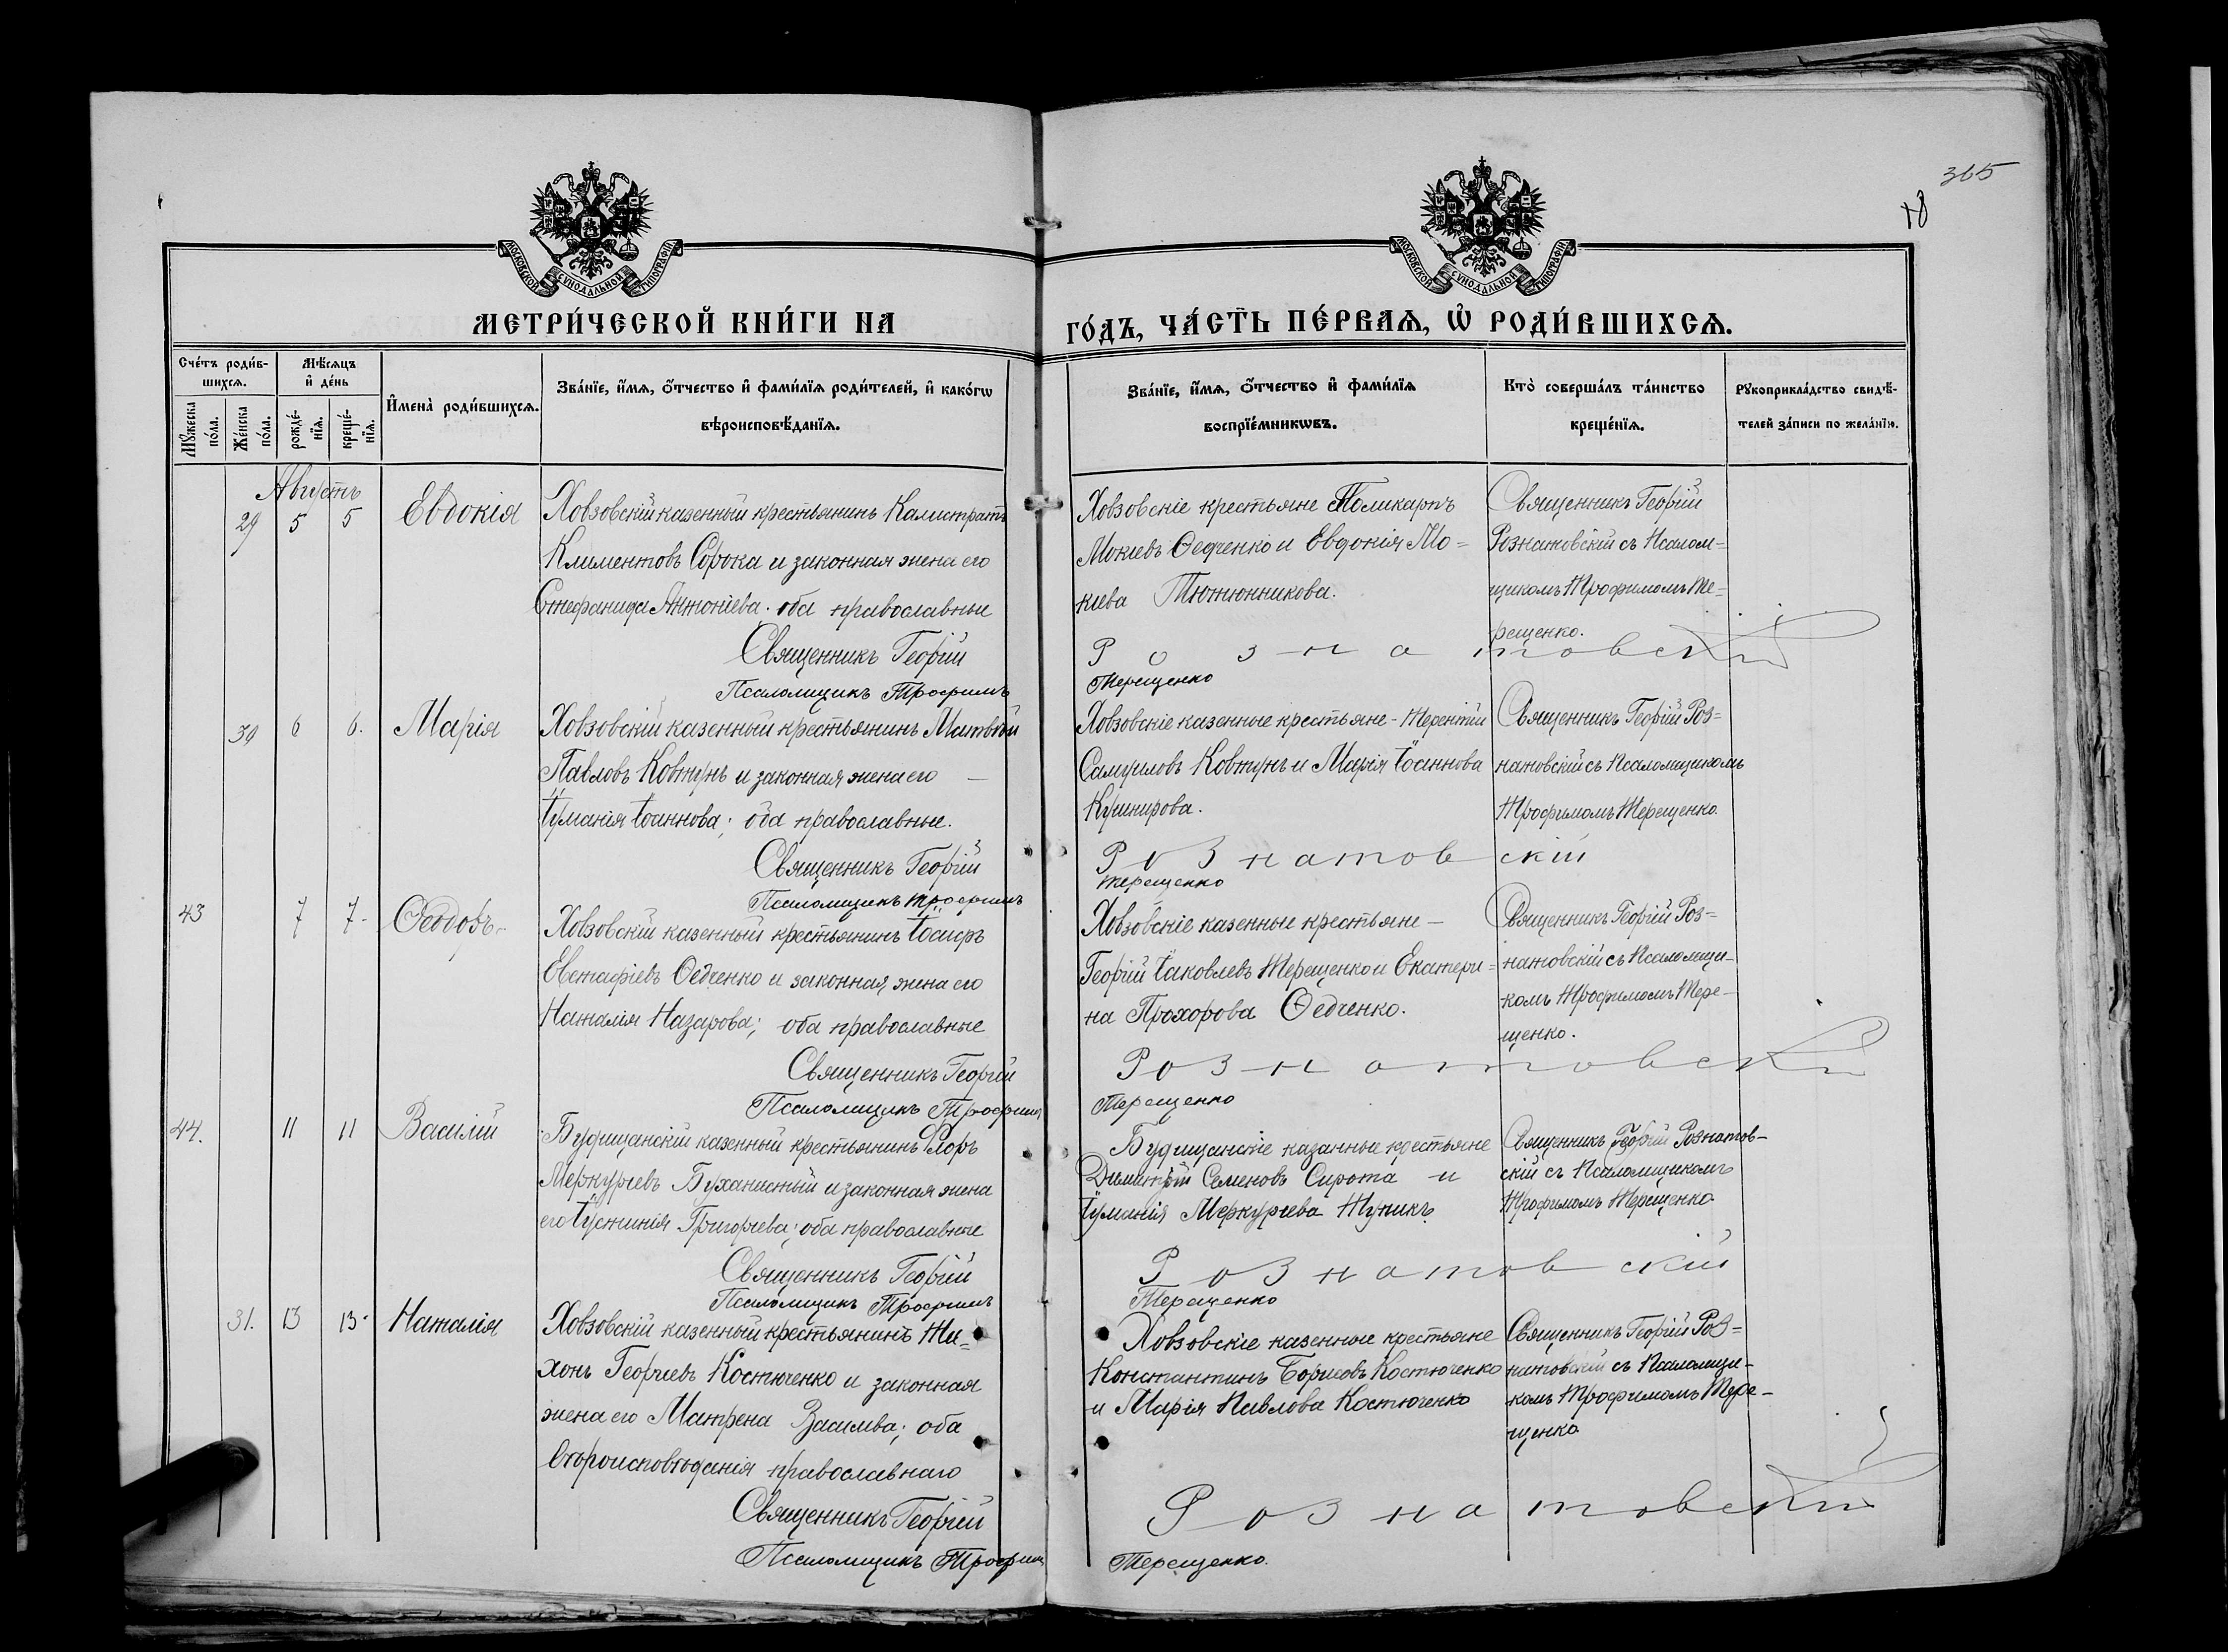 365
18
МОСКОВСКОЙ СѴНОДАЛЬНОЙ ТИПОГРАФІИ
МОСКОВСКОЙ СѴНОДАЛЬНОЙ ТИПОГРАФІИ
МЕТРИ́ЧЕСКОЙ КНИ́ГИ НА
ГО́ДЪ, ЧА́СТЬ ПЕ́РВАѦ, Ѡ҆ РОДИ́ВШИХСѦ.
Сче́тъ роди́в-
шихсѧ.
Мꙋ́жеска
по́ла.
Же́нска
по́ла.
Мѣ́сѧцъ
и҆ де́нь
рожде́-
нїѧ.
креще́-
нїѧ.
И҆мена̀ роди́вшихсѧ.
Зва́нїе, и҆́мѧ, ѻ҆́тчество и҆ фами́лїѧ роди́телей, и҆ како́гѡ
вѣроисповѣ́данїѧ.
Зва́нїе, и҆́мѧ, ѻ҆́тчество и҆ фами́лїѧ
воспрїе́мникѡвъ.
Кто̀ соверша́лъ та́инство
креще́нїѧ.
Рꙋкоприкла́дство свидѣ́-
телей за́писи по жела́нїю.
Августъ
29 5 5 Евдокія
Ховзовскій казенный крестьянинъ Калистратъ
Климентовъ Сорока и законная жена его
Стефанида Антоніева. оба православные
Священникъ Георгій
Псаломщикъ Трофимъ
Ховзовскіе крестьяне Поликарпъ
Мокиевъ Ѳедченко и Евдокія Мо=
киева Тютюнникова.
Священникъ Георгій
Розната­товскій съ Псалом=
щикомъ Трофимомъ Те=
рещенко.
Розната­товскій
Терещенко
30 6 6. Марія
Ховзовскій казенный крестьянинъ Матвѣй
Павловъ Ковтунъ и законная жена его —
Іуліанія Іоаннова; оба православные.
Священникъ Георгій
Псаломщикъ Трофимъ
Ховзовскіе казенные крестьяне - Терентій
Самуиловъ Ковтунъ и Марія Іоаннова
Кушнирова.
Священникъ Георгій Роз=
натовскій съ Псаломщикомъ
Трофимомъ Терещенко.
Розна­товскій
Терещенко
43 7 7. Ѳеодоръ.
Ховзовскій казенный крестьянинъ Іосифъ
Евстафіевъ Ѳедченко и законная жена его
Наталія Назарова; оба православные
Священникъ Георгій
Псаломщикъ Трофимъ
Ховзовскіе казенные крестьяне —
Георгій Іаковлевъ Терещенко и Екатери=
на Прохорова Ѳедченко.
Священникъ Георгій Роз=
натовскій съ Псаломщи-
комъ Трофимомъ Тере-
щенко.
Розна­товскій
Терещенко
44. 11 11 Василій
Будищанскій казенный крестьянинъ Флоръ
Меркурьевъ Буханистый и законная жена
его Іустинія Григорьева; оба православные
Священникъ Георгій
Псаломщикъ Трофимъ
Будищанскіе казанные крестьяне
Димитрій Семеновъ Сирота и
Іуліанія Меркурьева Тупикъ.
Священникъ Георгій Рознатов-
скій съ Псаломщикомъ
Трофимомъ Терещенко
Розна­товскій
Терещенко
31. 13 13. Наталія
Ховзовскій казенный крестьянинъ Ти=
хонъ Георгіевъ Костюченко и законная
жена его Матрена Васильва; оба
вѣроисповѣданія православнаго
Священникъ Георгій
Псаломщикъ Трофим
Ховзовскіе казенные крестьяне
Константинъ Борисовъ Костюченко
и Марія Павлова Костюченко
Священникъ Георгій Роз=
натовскій съ Псаломщи-
комъ Трофимомъ Тере-
щенко
Розна­товскій
Терещенко.